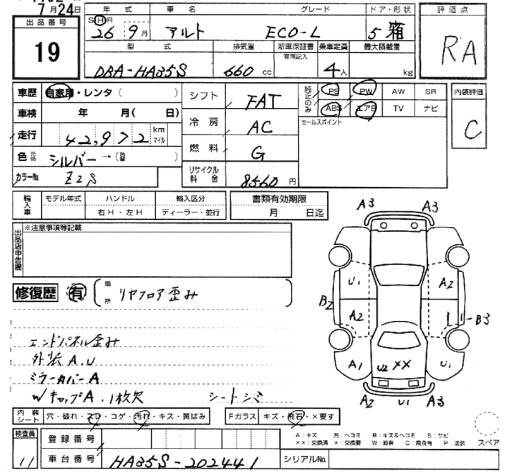 7月24日
出品番号
19
年 車名 グレード ドア・形状
S・H・R 26年 9月 アルト ECO-L 5 箱
型式 排気量 新車保証書 乗車定員 最大積載量
有限記入
DBA-HA35S 660 cc 4人 kg
評価点
RA
内装評価
C
車歴 自家用・レンタ( )
車検 年 月( 日)
走行 42,972 km マイル
色 シルバー →( )
カラーNo Z2S
シフト FAT
冷房 AC
燃料 G
リサイクル料金 8560円
純正のみ PS PW AW SR
ABS エアB TV ナビ
セールスポイント
輸入車 モデル年式 ハンドル 輸入区分
右H・左H ディーラー・並行
書類有効期限
月 日迄
※注意事項等記載
修復歴 有 箇所 リヤフロア歪み
エンドパネル歪み
外装A.U
ミラーカバーA
WキャップA.1枚欠 シートシミ
A3 A3
U1 A2
B2 A2 1-B3
A1 U2 XX U1
A2 U1 A3
内装シート 穴・破れ・スレ・コゲ・汚れ・キズ・黄ばみ
Fガラス キズ・飛石・×要す
A:キズ U:ヘコミ B:キズ&ヘコミ S:サビ
××:交換済 ×:交換要 W:補修 C:腐食有 P:塗装
スペア
検査員 11
登録番号
車台番号 HA35S-202441
シリアルNo.